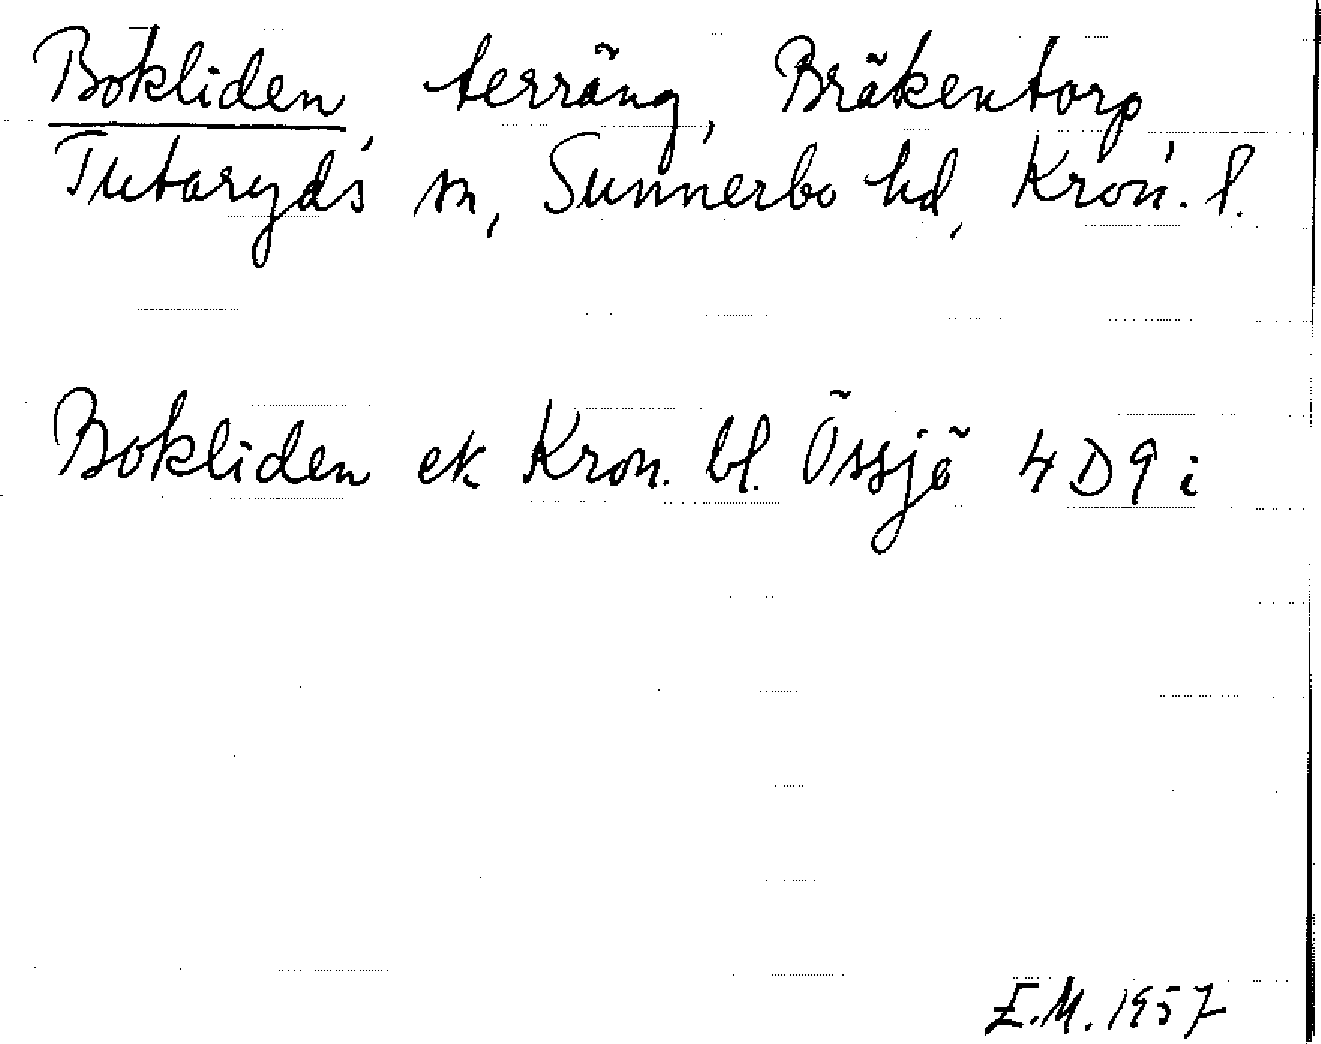 Bokliden, terräng, Bräkentorp,
Tutaryds sn, Sunnerbo hd, Kron. l.
Bokliden ek Kron. bl. Össjö 4D9i
E.M. 1957